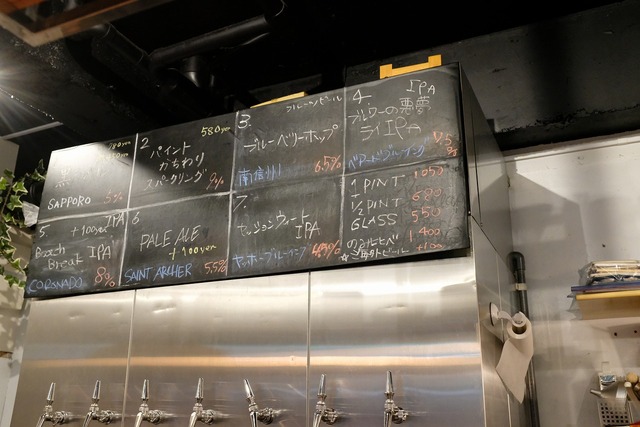 黒
SAPPORO 5%
2 580yen
パイント
かちわり
スパークリング 9%
3. フルーツビール
ブルーベリーホップ
南信州 6.5%
4. IPA
ブルワーの悪夢
ライIPA
7.5%
5. +100yen IPA
Beach Break IPA
CORONADO 8%
6
PALE ALE
+100yen
SAINT ARCHER 5.5%
7.
セッションウィート
IPA
ヤッホーブルーイング
1 PINT 1050
1/2 PINT 680
GLASS 550
のみくらべ 1400
☆海外ビール +100